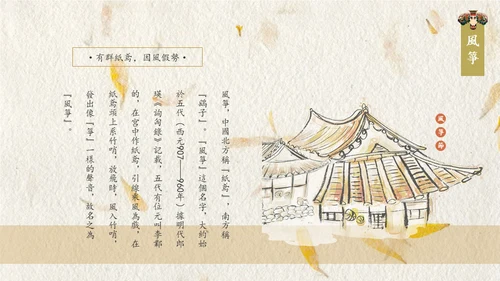 風箏
•有群紙鳶，因風假勢•
風箏，中國北方稱『紙鳶』，南方稱
『鷂子』。『風箏』這個名字，大約始
於五代（西元907——960年）據明代郎
瑛《詢芻錄》記載，五代有位元叫李鄴
的，在宮中作紙鳶，引線乘風為戲，在
紙鳶頭上系竹哨，放飛時，風入竹哨，
發出像『箏』一樣的聲音，故名之為
『風箏』。
風箏節